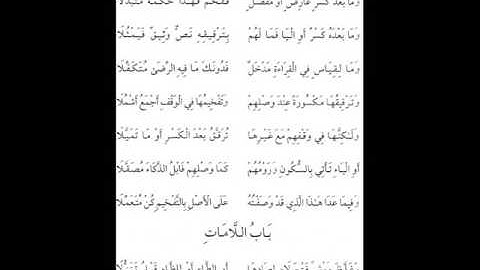 وَمَا بَعْدَ كَسْرٍ عَارِضٍ أَوْ مُفَصَّلٍ فَفَخِّمْ فَهَذَا حُكْمُهُ مُتَبَذِّلَا
وَمَا بَعْدَهُ كَسْرٌ أَوِ الْيَا فَمَا لَهُمْ بِتَرْقِيقِهِ نَصٌّ وَثِيقٌ فَيَمْثُلَا
وَمَا لِقِيَاسٍ فِي الْقِرَاءَةِ مَدْخَلٌ فَدُونَكَ مَا فِيهِ الرِّضَى مُتَكَفِّلَا
وَتَرْقِيقُهَا مَكْسُورَةً عِنْدَ وَصْلِهِمْ وَتَفْخِيمُهَا فِي الْوَقْفِ أَجْمَعُ أَشْمُلَا
وَلَكِنَّهَا فِي وَقْفِهِمْ مَعَ غَيْرِهَا تُرَقَّقُ بَعْدَ الْكَسْرِ أَوْ مَا تَمَيَّلَا
أَوِ الْيَاءِ تَأْتِي بِالسُّكُونِ وَرَوْمُهُمْ كَمَا وَصْلِهِمْ فَابْلُ الذَّكَاءَ مُصَقَّلَا
وَفِيمَا عَدَا هَذَا الَّذِي قَدْ وَصَفْتُهُ عَلَى الْأَصْلِ بِالتَّفْخِيمِ كُنْ مُتَعَمِّلَا
بَابُ اللَّامَاتِ
وَغَلَّظَ وَرْشٌ فَتْحَ لَامٍ لِصَادِهَا أَوِ الطَّاءِ أَوْ لِلظَّاءِ قَبْلُ تَنَزُّلَا